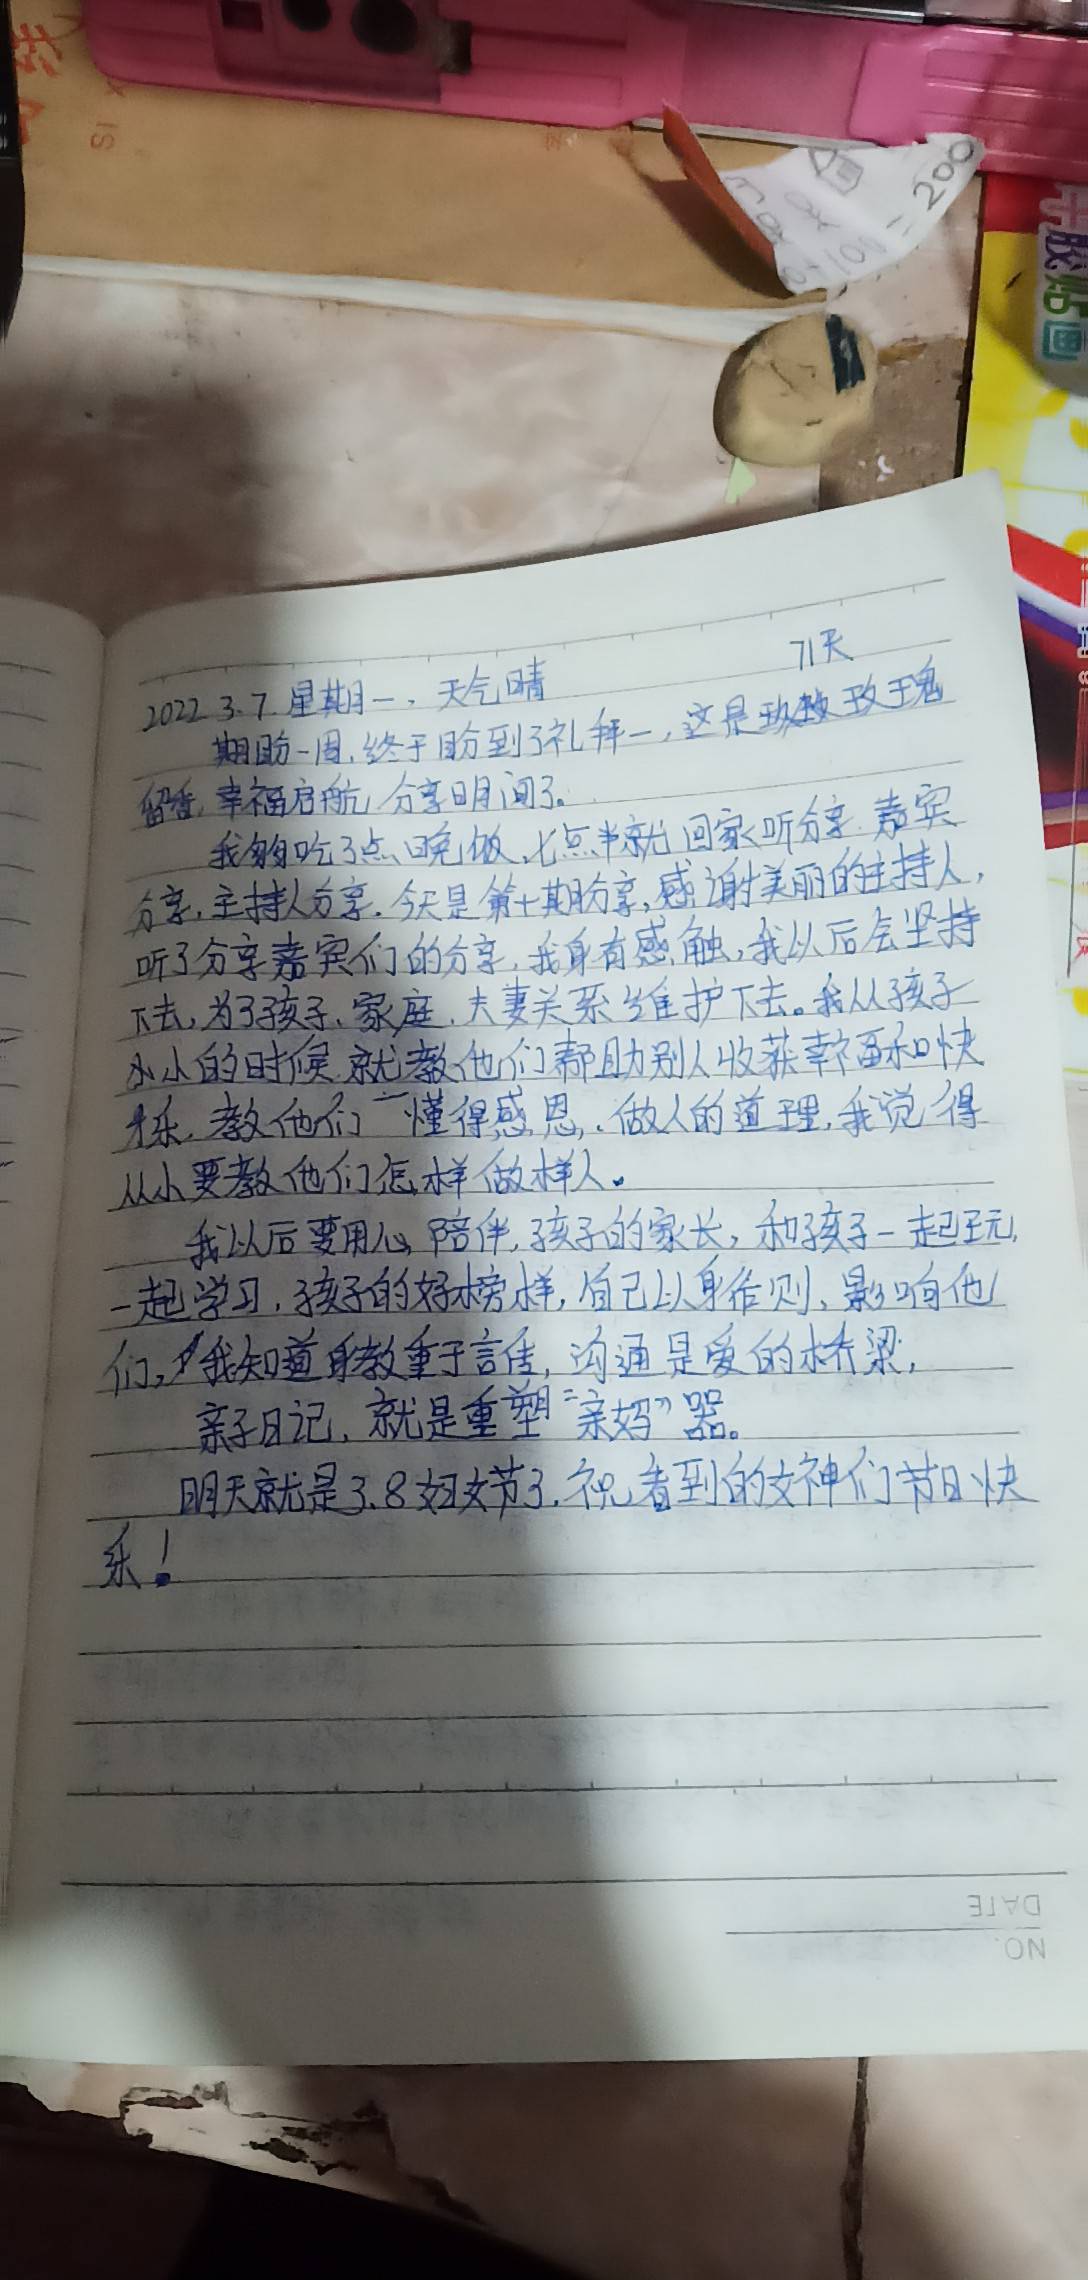 200
牛胶贴画
71天
2022 3.7. 星期一, 天气晴
期盼一周,终于盼到了礼拜一,这是玫瑰
留香,幸福启航,分享时间了。
我匆匆吃了点晚饭,七点半就回家听分享.嘉宾
分享,主持人分享.今天是第十期分享,感谢美丽的主持人,
听了分享嘉宾们的分享,我身有感触,我以后会坚持
下去,为了孩子、家庭.夫妻关系维护下去。我从孩子
小小的时候就教他们帮助别人收获幸福和快
乐.教他们懂得感恩,.做人的道理,我觉得
从小要教他们怎样做样人。
我以后要用心陪伴,孩子的家长,和孩子一起玩,
一起学习,孩子的好榜样,自己以身作则、影响他
们,我知道身教重于言传,沟通是爱的桥梁,
亲子日记,就是重塑“亲妈”器。
明天就是3.8妇女节了.祝看到的女神们节日快
乐!
DATE
NO.